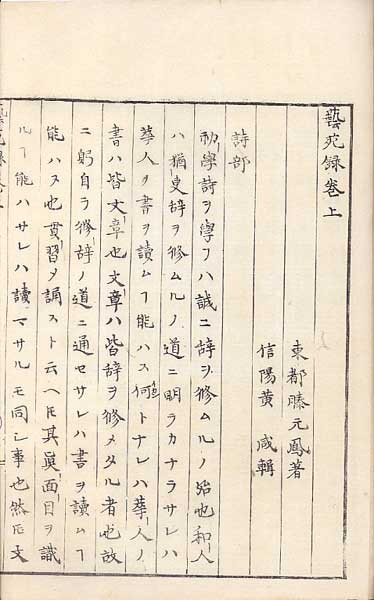 藝苑録巻上
東都滕元鳳著
信陽黄咸輯
詩部
初學詩ヲ學フハ誠ニ辞ヲ修ムルノ始也和人
ハ猶更辞ヲ修ムルノ道ニ明ラカナラサレハ
華人ノ書ヲ讀ムヿ能ハス何トナレハ華人ノ
書ハ皆文章也文章ハ皆辞ヲ修メタル者也故
ニ躬自ラ修辞ノ道ニ通セサレハ書ヲ讀ムヿ
能ハス也貫習メ誦スト云ヘ𪜈其眞面目ヲ識
ルヿ能ハサレハ讀マサルモ同シ事也然𪜈文